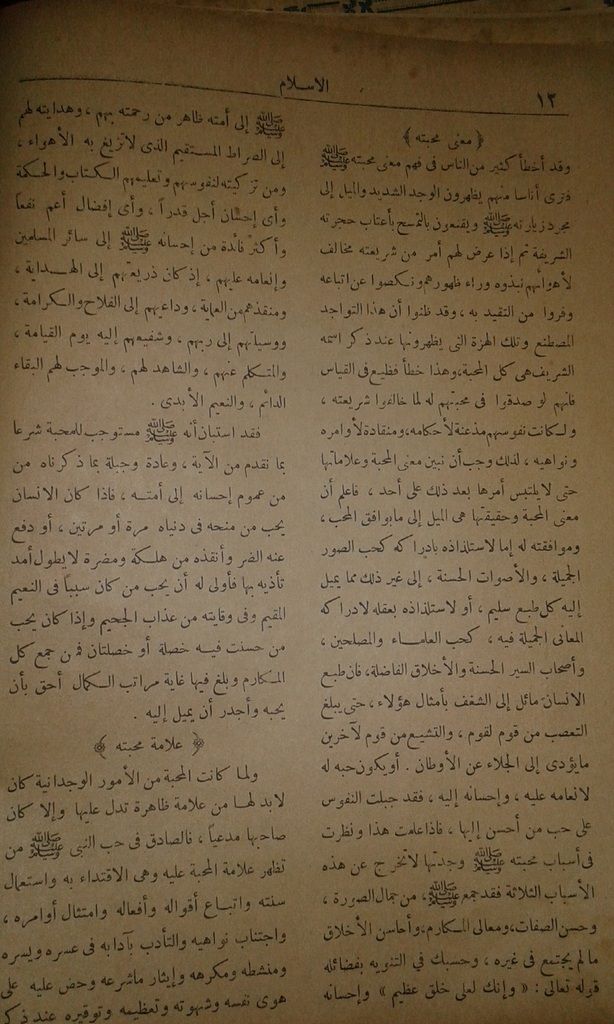 ١٢
الاسلام
﴿ معنى محبته ﴾
وقد أخطأ كثير من الناس فى فهم معنى محبته ﷺ
فترى أناسا منهم يظهرون الوجد الشديد والميل إلى
مجرد زيارته ﷺ ويقنعون بالتمسح بأعتاب حجرته
الشريفة ثم إذا عرض لهم أمر من شريعته مخالف
لأهوائهم نبذوه وراء ظهورهم ونكصوا عن اتباعه
وفروا من التقيد به ، وقد ظنوا أن هذا التواجد
المصطنع وتلك الهزة التى يظهرونها عند ذكر اسمه
الشريف هى كل المحبة، وهذا خطأ فظيع فى القياس
فانهم لو صدقوا فى محبتهم له لما خالفوا شريعته ،
ولكانت نفوسهم مذعنة لأحكامه، ومنقادة لأوامره
ونواهيه ، لذلك وجب أن نبين معنى المحبة وعلاماتها
حتى لا يلتبس أمرها بعد ذلك على أحد ، فاعلم أن
معنى المحبة وحقيقتها هى الميل إلى ما يوافق المحب ،
وموافقته له إما لاستلذاذه بادراكه كحب الصور
الجميلة ، والأصوات الحسنة ، إلى غير ذلك مما يميل
إليه كل طبع سليم ، أو لاستلذاذه بعقله لادراكه
المعانى الجميلة فيه ، كحب العلماء والمصلحين ،
وأصحاب السير الحسنة والأخلاق الفاضلة، فان طبع
الانسان مائل إلى الشغف بأمثال هؤلاء ، حتى يبلغ
التعصب من قوم لقوم ، والتشيع من قوم لآخرين
ما يؤدى إلى الجلاء عن الأوطان . أو يكون حبه له
لانعامه عليه ، وإحسانه إليه ، فقد جبلت النفوس
على حب من أحسن إليها ، فاذا علمت هذا ونظرت
فى أسباب محبته ﷺ وجدتها لا تخرج عن هذه
الأسباب الثلاثة فقد جمع ﷺ، من جمال الصورة ،
وحسن الصفات، ومعالى المكارم، وأحاسن الأخلاق
ما لم يجتمع فى غيره ، وحسبك في التنويه بفضائله
قوله تعالى : « وإنك لعلى خلق عظيم » وإحسانه
ﷺ إلى أمته ظاهر من رحمته بهم ، وهدايته لهم
إلى الصراط المستقيم الذى لا تزيغ به الأهواء ،
ومن تزكيته لنفوسهم وتعليمهم الكتاب والحكمة
وأى إحسان أجل قدراً ، وأى إفضال أعم نفعاً
وأكثر فائدة من إحسانه ﷺ إلى سائر المسلمين
وإنعامه عليهم ، إذ كان ذريعتهم إلى الهداية ،
ومنقذهم من العماية، وداعيهم إلى الفلاح والكرامة ،
ووسيلتهم إلى ربهم ، وشفيعهم إليه يوم القيامة ،
والمتكلم عنهم ، والشاهد لهم ، والموجب لهم البقاء
الدائم ، والنعيم الأبدى .
فقد استبان أنه ﷺ مستوجب للمحبة شرعا
بما تقدم من الآية ، وعادة وجبلة بما ذكرناه من
من عموم إحسانه إلى أمته ، فاذا كان الانسان
يحب من منحه فى دنياه مرة أو مرتين ، أو دفع
عنه الضر وأنقذه من هلكة ومضرة لا يطول أمد
تأذيه بها فأولى له أن يحب من كان سبباً فى النعيم
المقيم وفى وقايته من عذاب الجحيم وإذا كان يحب
من حسنت فيه خصلة أو خصلتان فمن جمع كل
المكارم وبلغ فيها غاية مراتب الكمال أحق بأن
يحبه وأجدر أن يميل إليه .
﴿ علامة محبته ﴾
ولما كانت المحبة من الأمور الوجدانية كان
لابد لها من علامة ظاهرة تدل عليها وإلا كان
صاحبها مدعياً ، فالصادق فى حب النبى ﷺ من
تظهر علامة المحبة عليه وهى الاقتداء به واستعمال
سنته واتباع أقواله وأفعاله وامتثال أوامره ،
واجتناب نواهيه والتأدب بآدابه فى عسره ويسره
ومنشطه ومكرهه وإيثار ما شرعه وحض عليه على
هوى نفسه وشهوته وتعظيمه وتوقيره عند ذكر